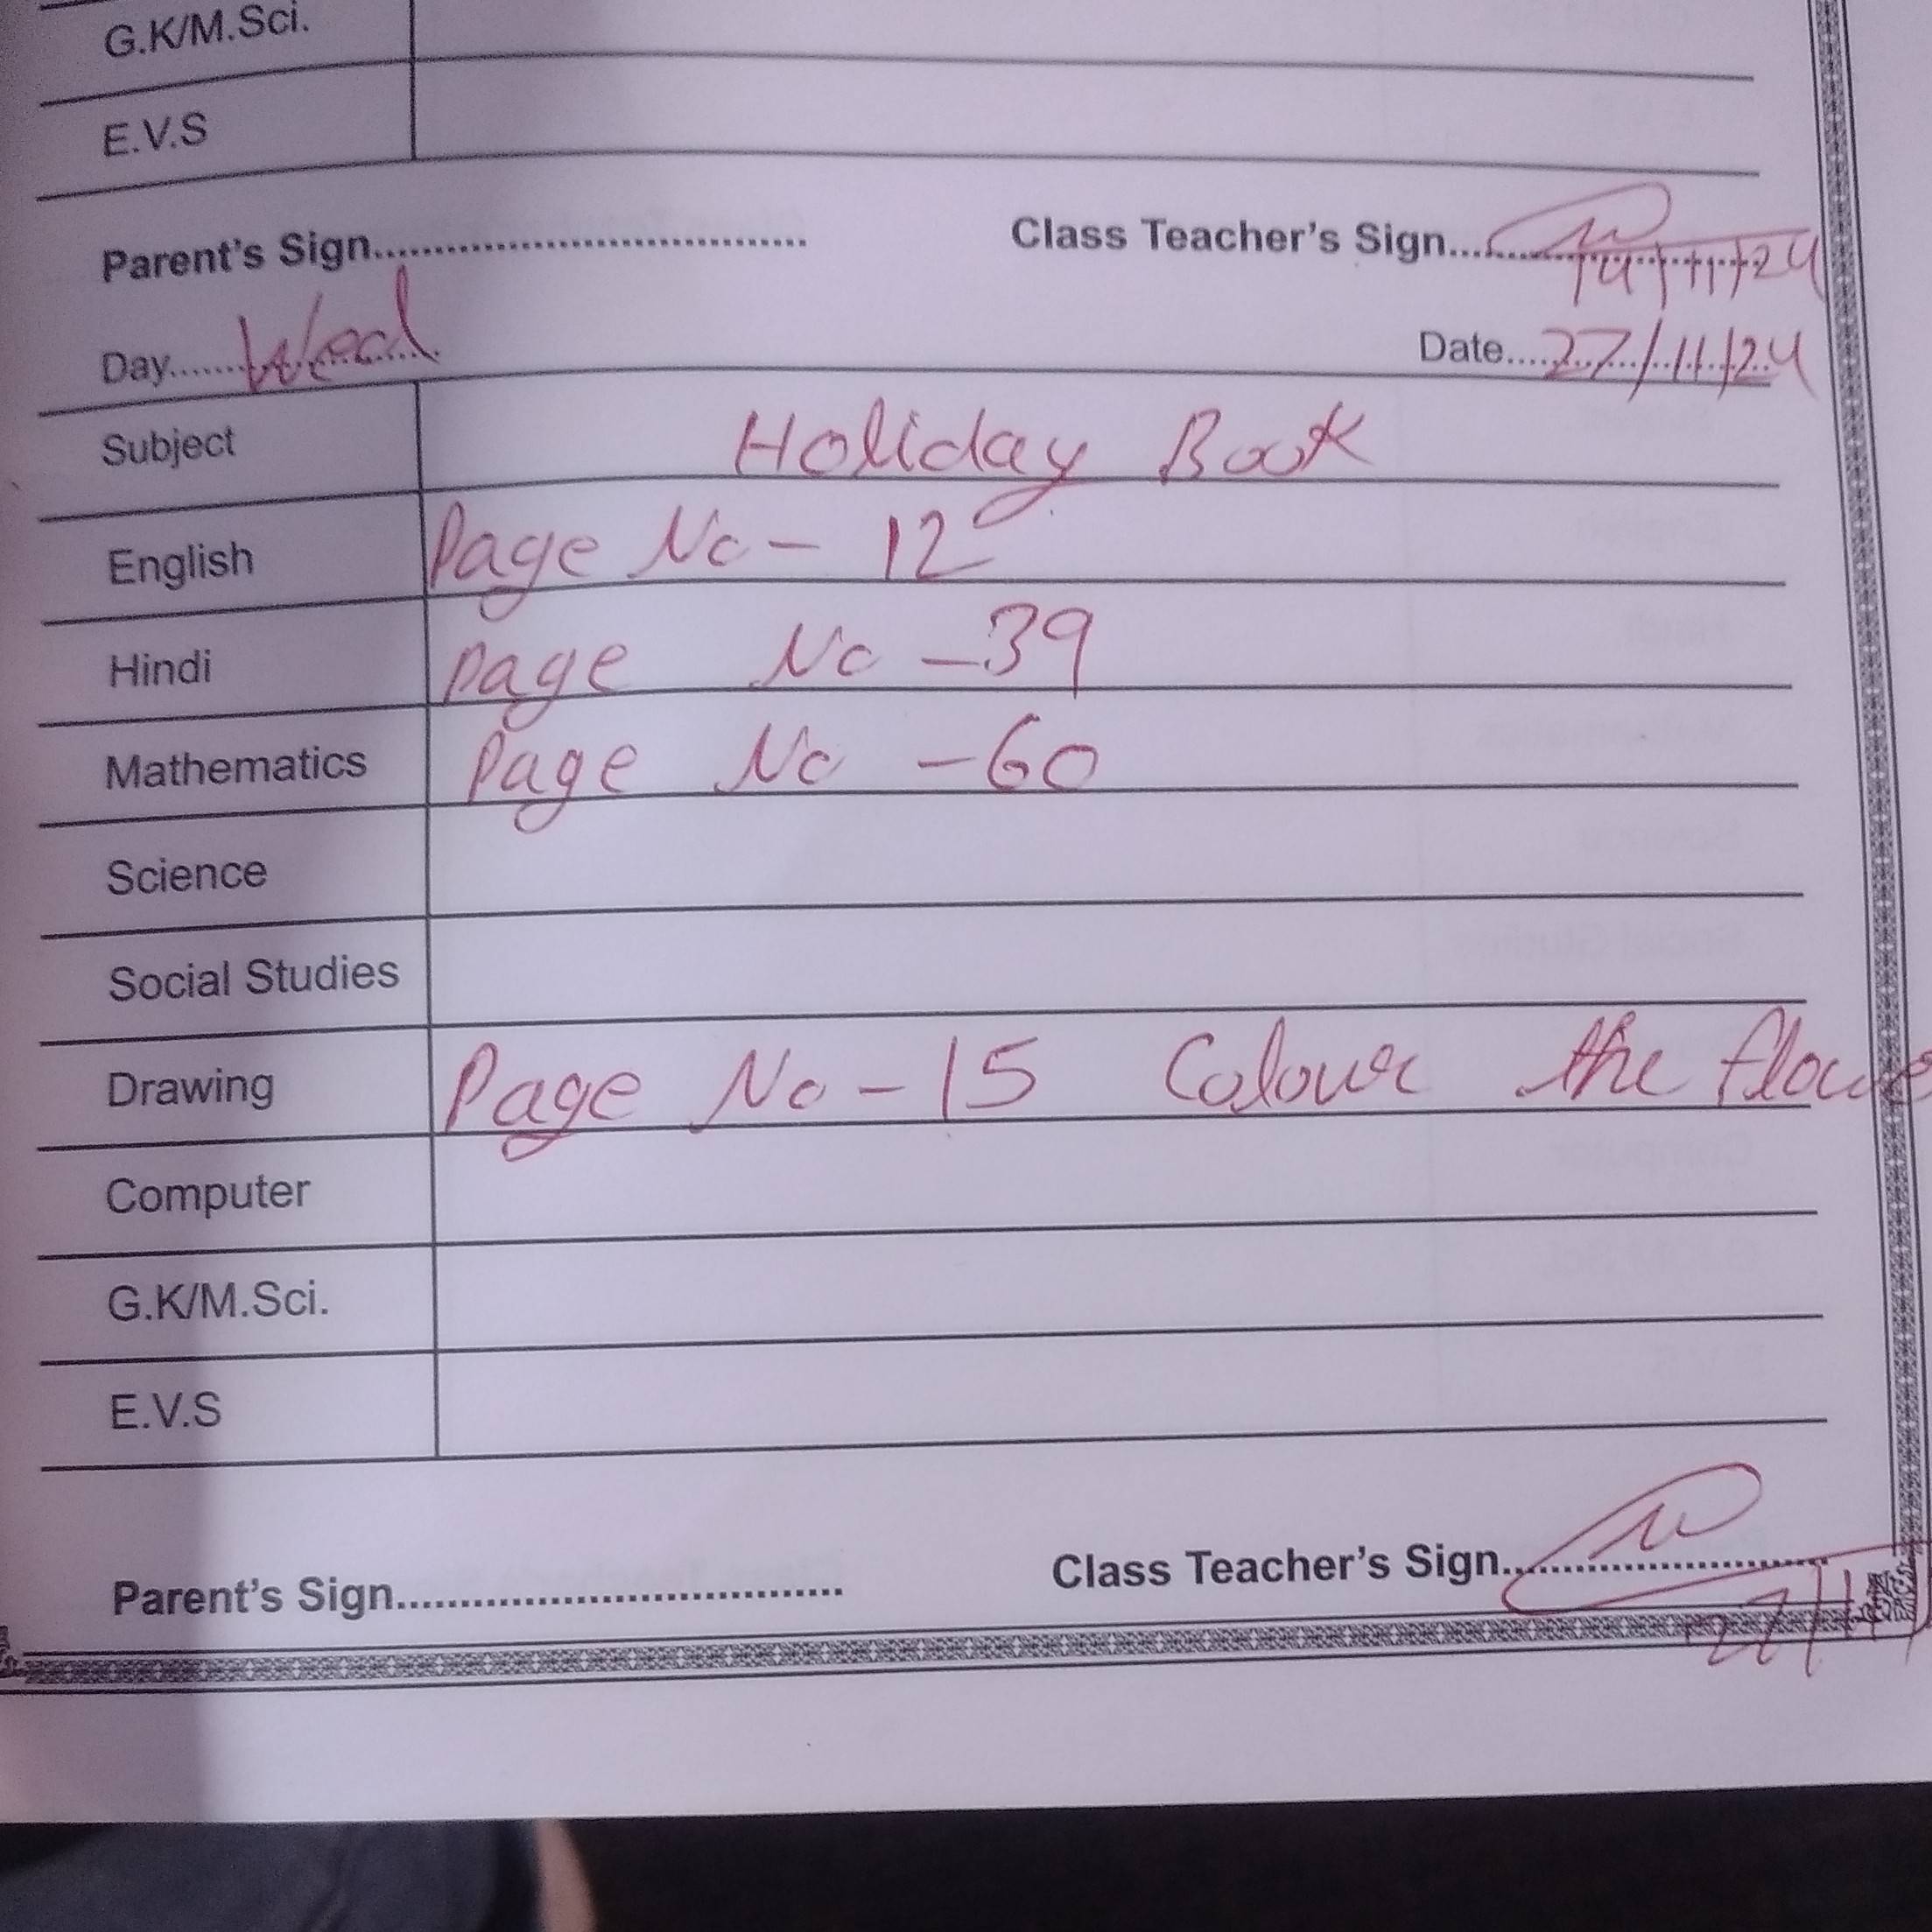 G.K/M.Sci.
E.V.S
Parent's Sign.................................... Class Teacher's Sign....................
14/11/24
Day......Wed Date....27/11/24
Subject Holiday Book
English Page No - 12
Hindi Page No - 39
Mathematics Page No - 60
Science
Social Studies
Drawing Page No - 15 Colour the
Computer
G.K/M.Sci.
E.V.S
Parent's Sign.................................... Class Teacher's Sign....................